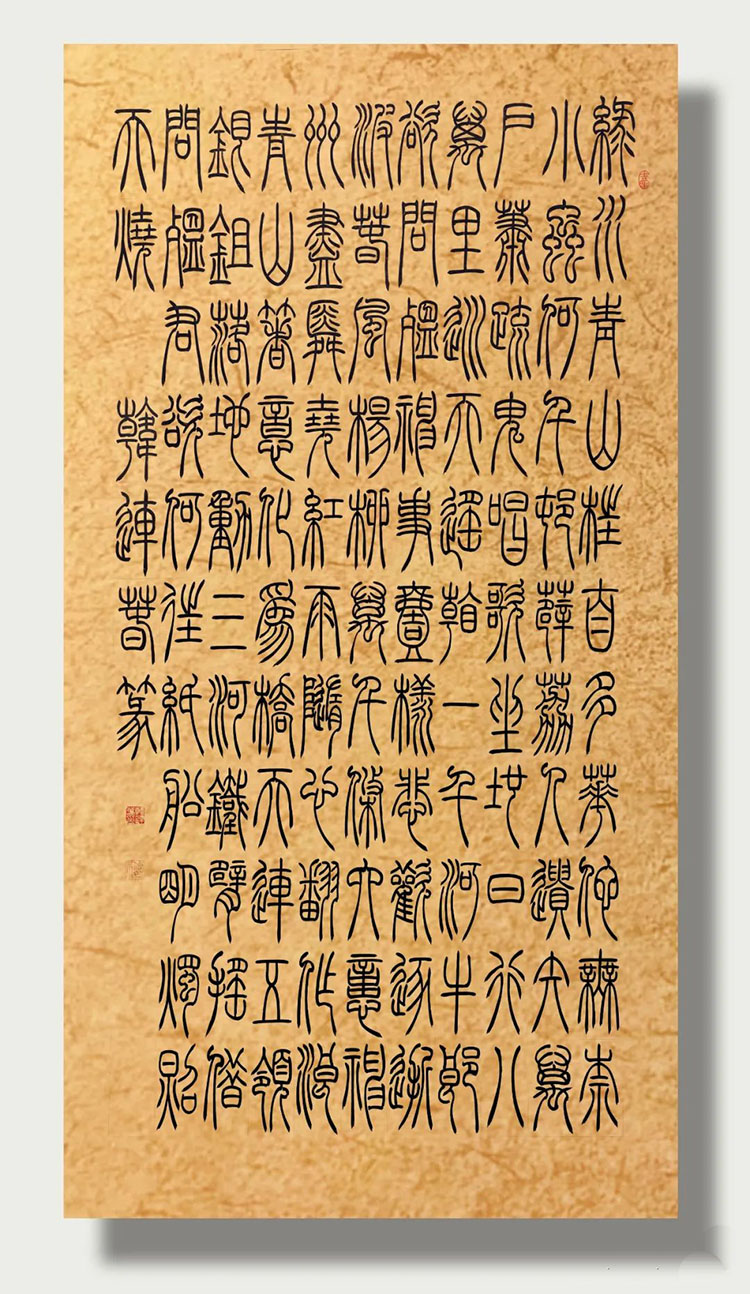 綠水青山枉自多華佗無奈
小蟲何千邨薜荔人遺矢萬
戶蕭疏鬼唱歌坐地日行八
萬里巡天遙看一千河牛郎
欲問瘟神事壹樣悲歡逐逝
波春風楊柳萬千條六億神
州盡舜堯紅雨隨心翻作浪
青山著意化為橋天連五嶺
銀鉏落地動三河鐵臂搖借
問瘟君欲何往紙船明燭照
天燒 韓連春篆